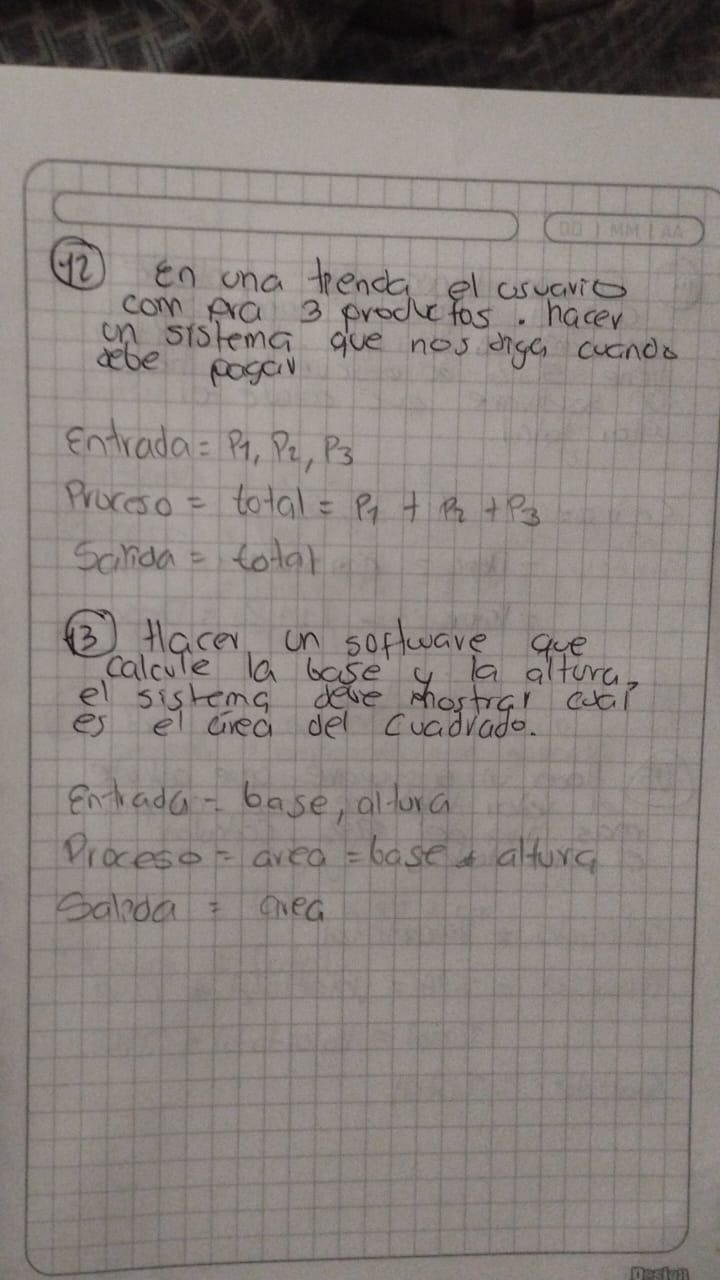 DD | MM | AA
12 En una tienda el usuario
compra 3 productos. hacer
un sistema que nos diga cuando
debe pagar
Entrada = P1, P2, P3
Proceso = total = P1 + P2 + P3
Salida = total
13 Hacer un software que
calcule la base y la altura,
el sistema debe mostrar cual
es el área del cuadrado.
Entrada = base, altura
Proceso = area = base * altura
Salida = area
Design